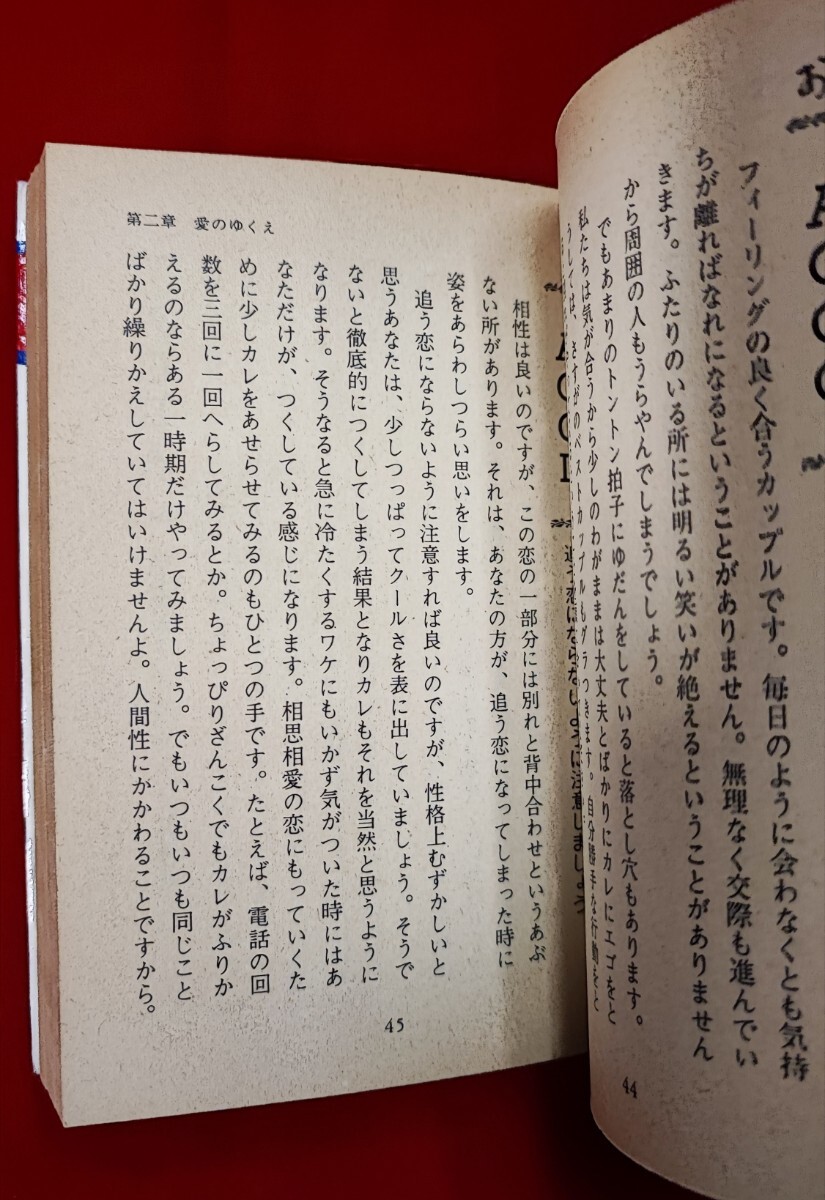 お
フィーリングの良く合うカップルです。毎日のように会わなくとも気持
ちが離ればなれになるということがありません。無理なく交際も進んでい
きます。ふたりのいる所には明るい笑いが絶えるということがありません
から周囲の人もうらやんでしまうでしょう。
でもあまりのトントン拍子にゆだんをしていると落とし穴もあります。
私たちは気が合うから少しのわがままは大丈夫とばかりにカレにエゴをと
うしては、さすがのベストカップルもグラつきます。自分勝手な行動をと
44
第二章 愛のゆくえ
追う恋にならないように注意しましょう
相性は良いのですが、この恋の一部分には別れと背中合わせというあぶ
ない所があります。それは、あなたの方が、追う恋になってしまった時に
姿をあらわしつらい思いをします。
追う恋にならないように注意すれば良いのですが、性格上むずかしいと
思うあなたは、少しつっぱってクールさを表に出していましょう。そうで
ないと徹底的につくしてしまう結果となりカレもそれを当然と思うように
なります。そうなると急に冷たくするワケにもいかず気がついた時にはあ
なただけが、つくしている感じになります。相思相愛の恋にもっていくた
めに少しカレをあせらせてみるのもひとつの手です。たとえば、電話の回
数を三回に一回へらしてみるとか。ちょっぴりざんこくでもカレがふりか
えるのならある一時期だけやってみましょう。でもいつもいつも同じこと
ばかり繰りかえしていてはいけませんよ。人間性にかかわることですから。
45